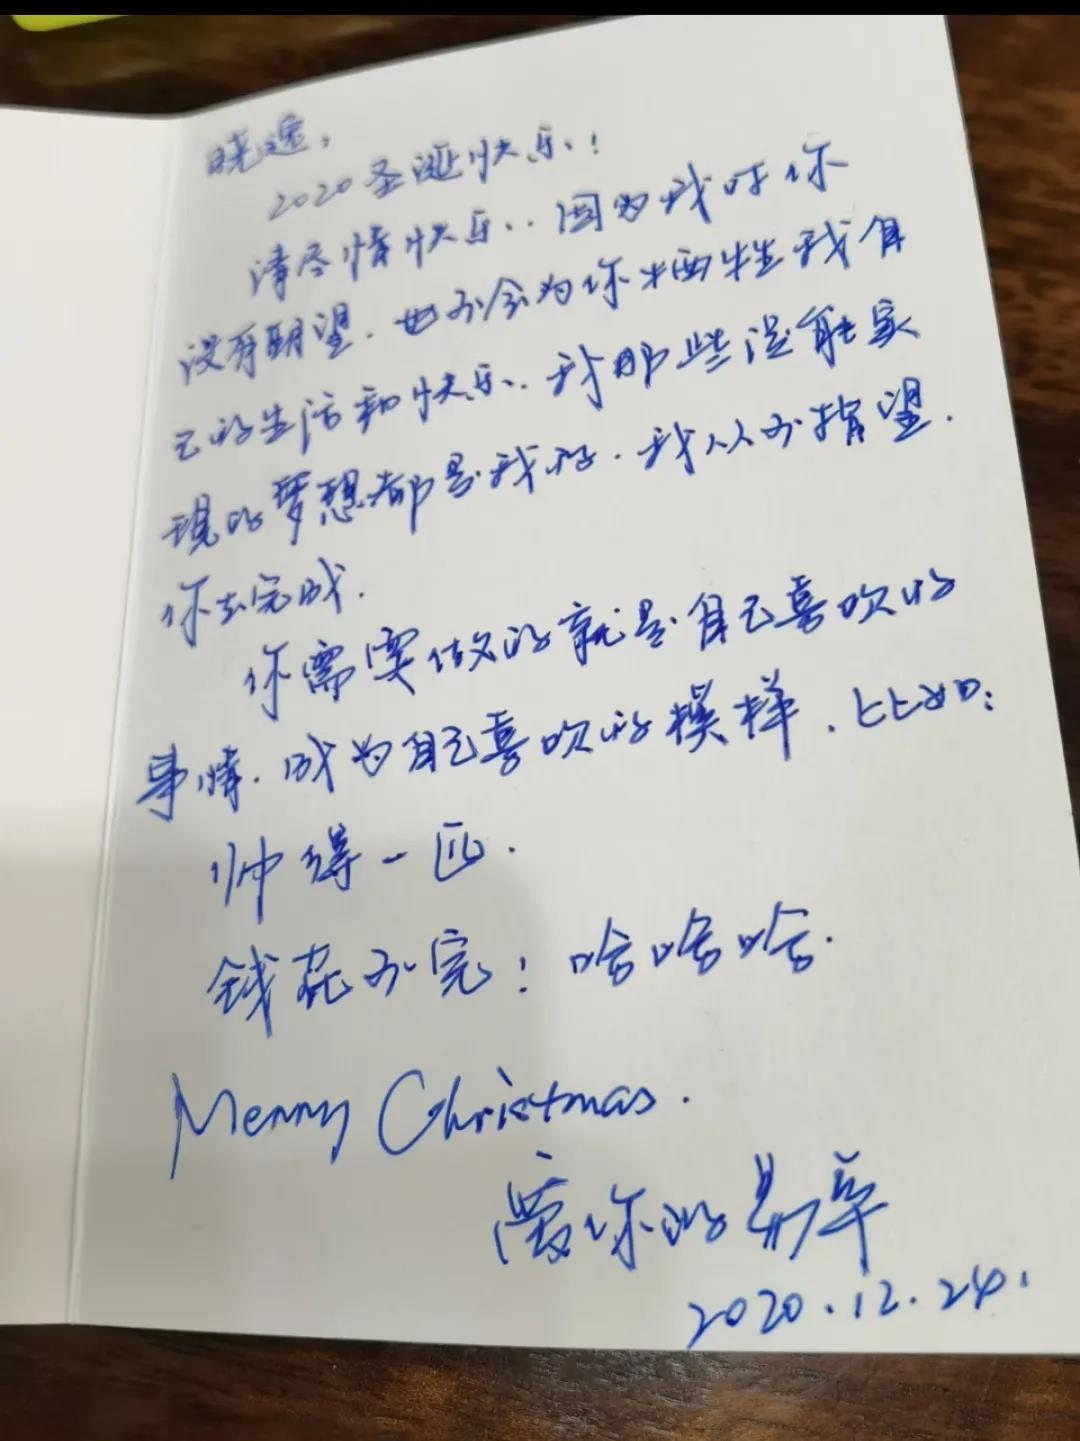 晓逸，
2020圣诞快乐！
请尽情快乐．因为我对你
没有期望．也不会为你牺牲我自
己的生活和快乐．我那些没能实
现的梦想都是我的．我从不指望．
你去完成．
你需要做的就是自己喜欢的
事情．成为自己喜欢的模样．比如：
帅得一匹．
钱花不完！哈哈哈．
Merry Christmas.
爱你的易辛
2020.12.24.